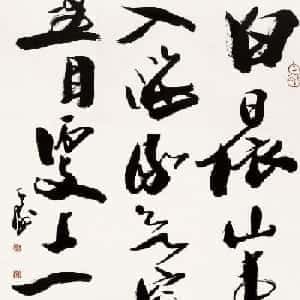 白日依山盡
入海流欲窮
里目更上一